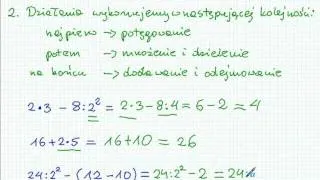 2. Działania wykonujemy w następującej kolejności:
najpierw → potęgowanie
potem → mnożenie i dzielenie
na końcu → dodawanie i odejmowanie
2·3 - 8:2² = 2·3 - 8:4 = 6 - 2 = 4
16 + 2·5 = 16 + 10 = 26
24:2² - (12 - 10) = 24:2² - 2 = 24: